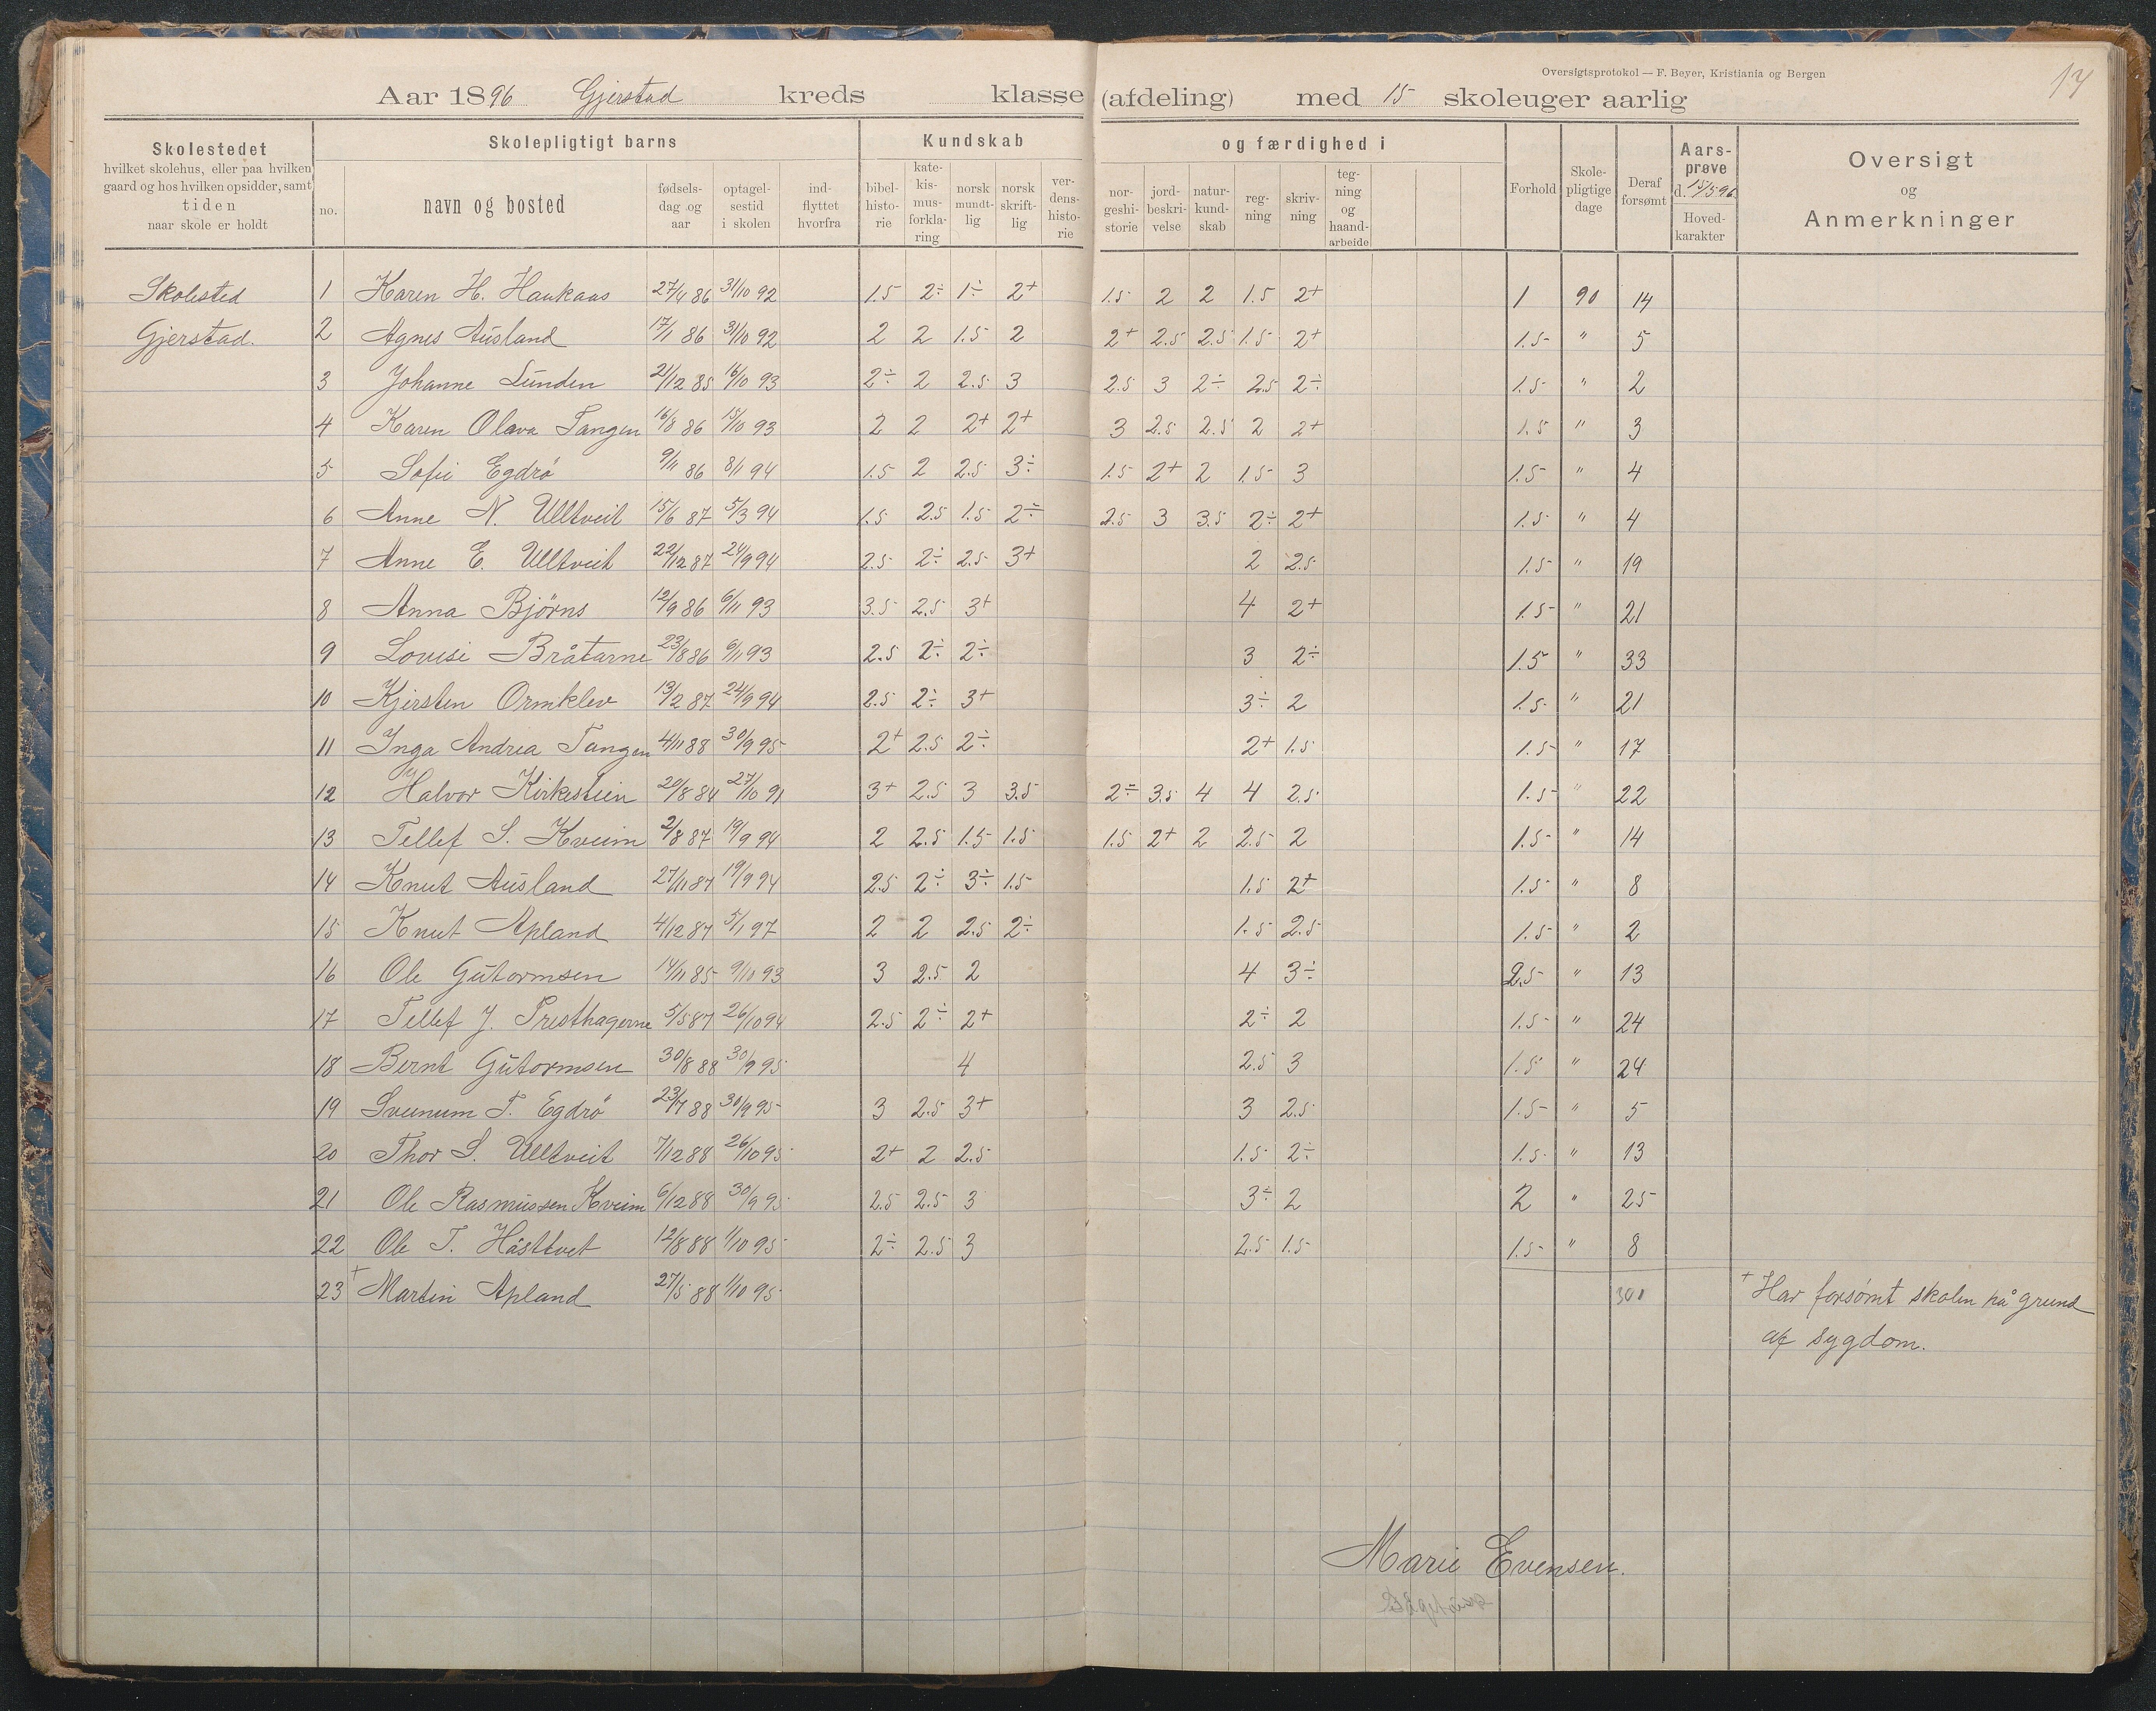 Oversigtsprotokol — F. Beyer, Kristiania og Bergen
Aar 1896 Gjerstad kreds klasse (afdeling) med 15 skoleuger aarlig
Skolestedet hvilket skolehus, eller paa hvilken gaard og hos hvilken opsidder, samt tiden naar skole er holdt
Skolepligtigt barns
no. navn og bosted fødsels-dag og aar optagel-sestid i skolen ind-flyttet hvorfra
Kundskab og færdighed i
bibel-histo-rie kate-kis-mus-forkla-ring norsk mundt-lig norsk skrift-lig ver-dens-histo-rie nor-geshi-storie jord-beskri-velse natur-kund-skab reg-ning skriv-ning teg-ning og haand-arbeide
Forhold Skole-pligtige dage Deraf forsømt Aars-prøve d. 15/5 96 Hoved-karakter
Oversigt og Anmerkninger
Skolested 1 Karen H. Haukaas 27/4 86 31/10 92 1.5 2÷ 1÷ 2+ 1.5 2 2 1.5 2+ 1 90 14
Gjerstad. 2 Agnes Ausland 17/1 86 31/10 92 2 2 1.5 2 2+ 2.5 2.5 1.5 2+ 1.5 " 5
3 Johanne Lunden 21/12 85 16/10 93 2÷ 2 2.5 3 2.5 3 2÷ 2.5 2÷ 1.5 " 2
4 Karen Olava Tangen 16/8 86 15/10 93 2 2 2+ 2+ 3 2.5 2.5 2 2+ 1.5 " 3
5 Sofie Egdrö 9/11 86 8/1 94 1.5 2 2.5 3÷ 1.5 2+ 2 1.5 3 1.5 " 4
6 Anne N. Ulltveit 15/6 87 5/3 94 1.5 2.5 1.5 2÷ 2.5 3 3.5 2÷ 2+ 1.5 " 4
7 Anne E. Ulltveit 22/12 87 24/9 94 2.5 2÷ 2.5 3+ 2 2.5 1.5 " 19
8 Anna Bjørns 12/9 86 6/11 93 3.5 2.5 3+ 4 2+ 1.5 " 21
9 Lovise Bråtarne 23/8 86 6/11 93 2.5 2÷ 2÷ 3 2÷ 1.5 " 33
10 Kjersten Ormklev 13/2 87 24/9 94 2.5 2÷ 3+ 3÷ 2 1.5 " 21
11 Inga Andrea Tangen 4/11 88 30/9 95 2+ 2.5 2÷ 2+ 1.5 1.5 " 17
12 Halvor Kirkestein 20/8 84 27/10 91 3+ 2.5 3 3.5 2÷ 3.5 4 4 2.5 1.5 " 22
13 Tellef S. Kveim 2/8 87 19/9 94 2 2.5 1.5 1.5 1.5 2+ 2 2.5 2 1.5 " 14
14 Knut Ausland 27/11 87 19/9 94 2.5 2÷ 3÷ 1.5 1.5 2+ 1.5 " 8
15 Knut Apland 4/12 87 5/1 97 2 2 2.5 2÷ 1.5 2.5 1.5 " 2
16 Ole Gutormsen 14/11 85 9/10 93 3 2.5 2 4 3÷ 2.5 " 13
17 Tellef J. Presthagerne 5/5 87 26/10 94 2.5 2÷ 2+ 2÷ 2 1.5 " 24
18 Bernt Gutormsen 30/8 88 30/9 95 4 2.5 3 1.5 " 24
19 Sveinum T. Egdrö 23/7 88 30/9 95 3 2.5 3+ 3 2.5 1.5 " 5
20 Thor S. Ulltveit 7/12 88 26/10 95 2+ 2 2.5 1.5 2÷ 1.5 " 13
21 Ole Rasmussen Kveim 6/12 88 30/9 95 2.5 2.5 3 3÷ 2 2 " 25
22 Ole T. Håsttvet 12/8 88 1/10 95 2÷ 2.5 3 2.5 1.5 1.5 " 8
23 + Martin Apland 27/5 88 1/10 95 + Har forsømt skolen på grund
af sygdom.
Marie Evensen.